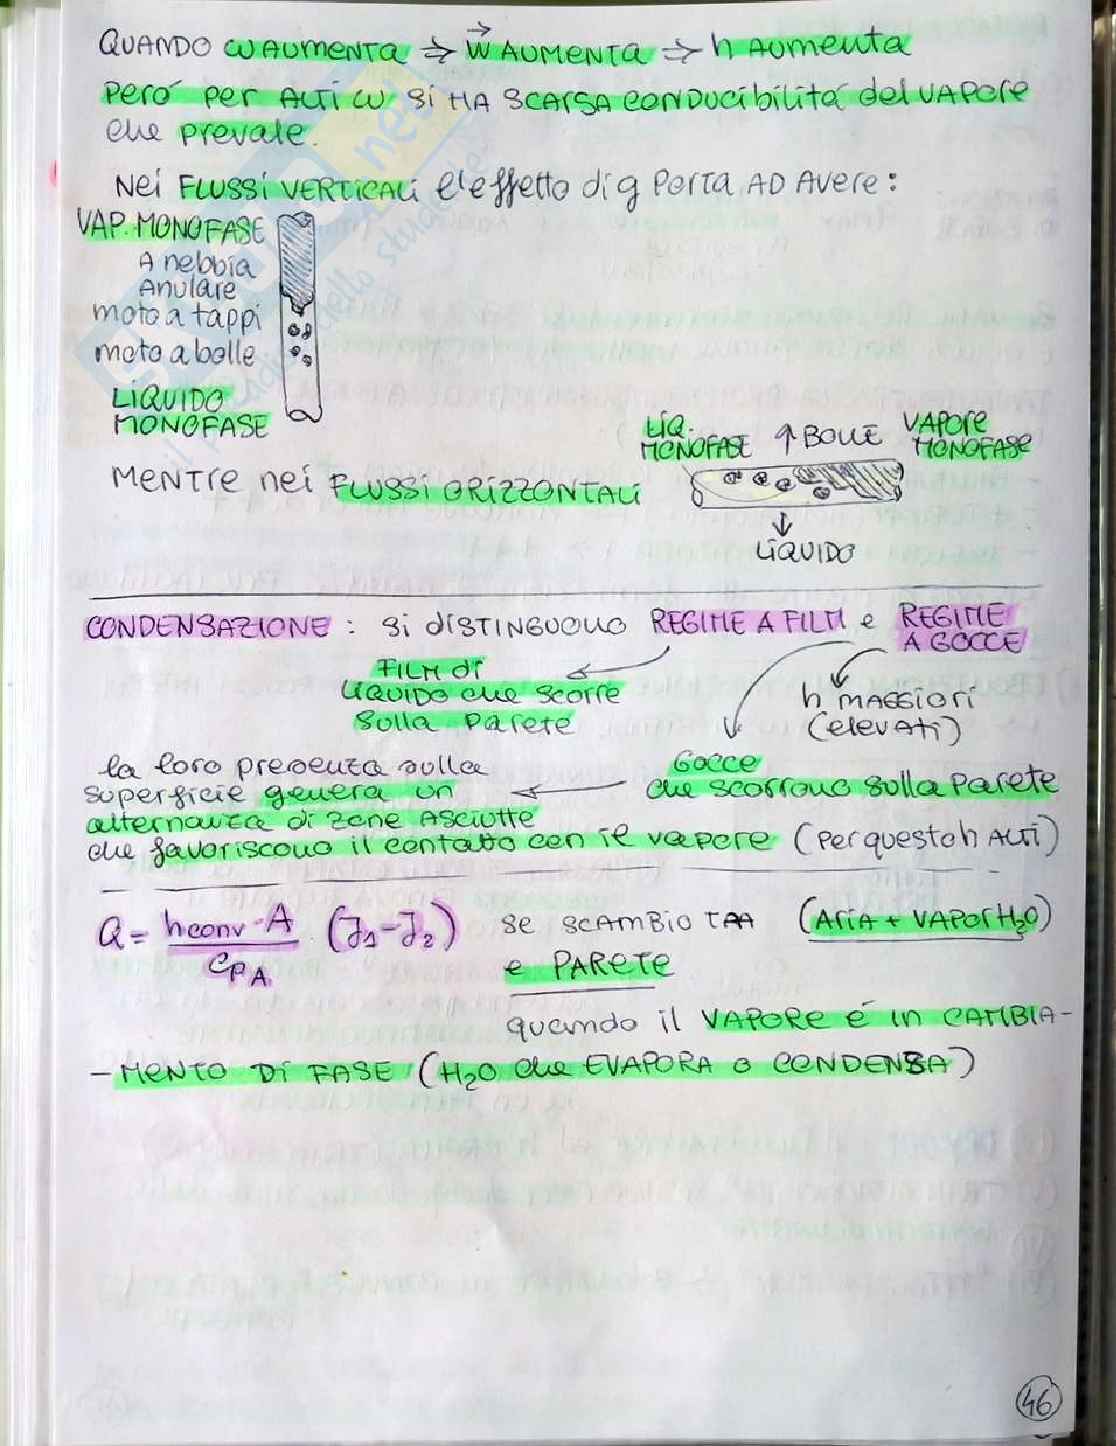 QUANDO ω AUMENTA ⇒ w⃗ AUMENTA ⇒ h AUMENTA
Però per ALTI ω si HA SCARSA CONDUCIBILITà del VAPORE
che prevale.
Nei FLUSSI VERTICALI l'effetto di g PORTA AD AVERE:
VAP. MONOFASE
A nebbia
Anulare
moto a tappi
moto a bolle
LIQUIDO
MONOFASE
LIQ.
MONOFASE
↑ BOLLE
VAPORE
MONOFASE
MENTRE nei FLUSSI ORIZZONTALI
↓
LIQUIDO
CONDENSAZIONE : si DISTINGUONO REGIME A FILM e REGIME
A GOCCE
FILM di
LIQUIDO che SCORRE
sulla PARETE
h MAGGIORI
(elevati)
la loro presenza sulla
superficie genera un
alternanza di zone ASCIUTTE
che favoriscono il contatto con il vapore (per questo h ALTI)
GOCCE
che SCORRONO sulla PARETE
Q = hconv · A / CPA (J1 - J2)
se SCAMBIO TRA (ARIA + VAPOR H2O)
e PARETE
quando il VAPORE é IN CAMBIA-
- MENTO DI FASE (H2O che EVAPORA O CONDENSA)
46